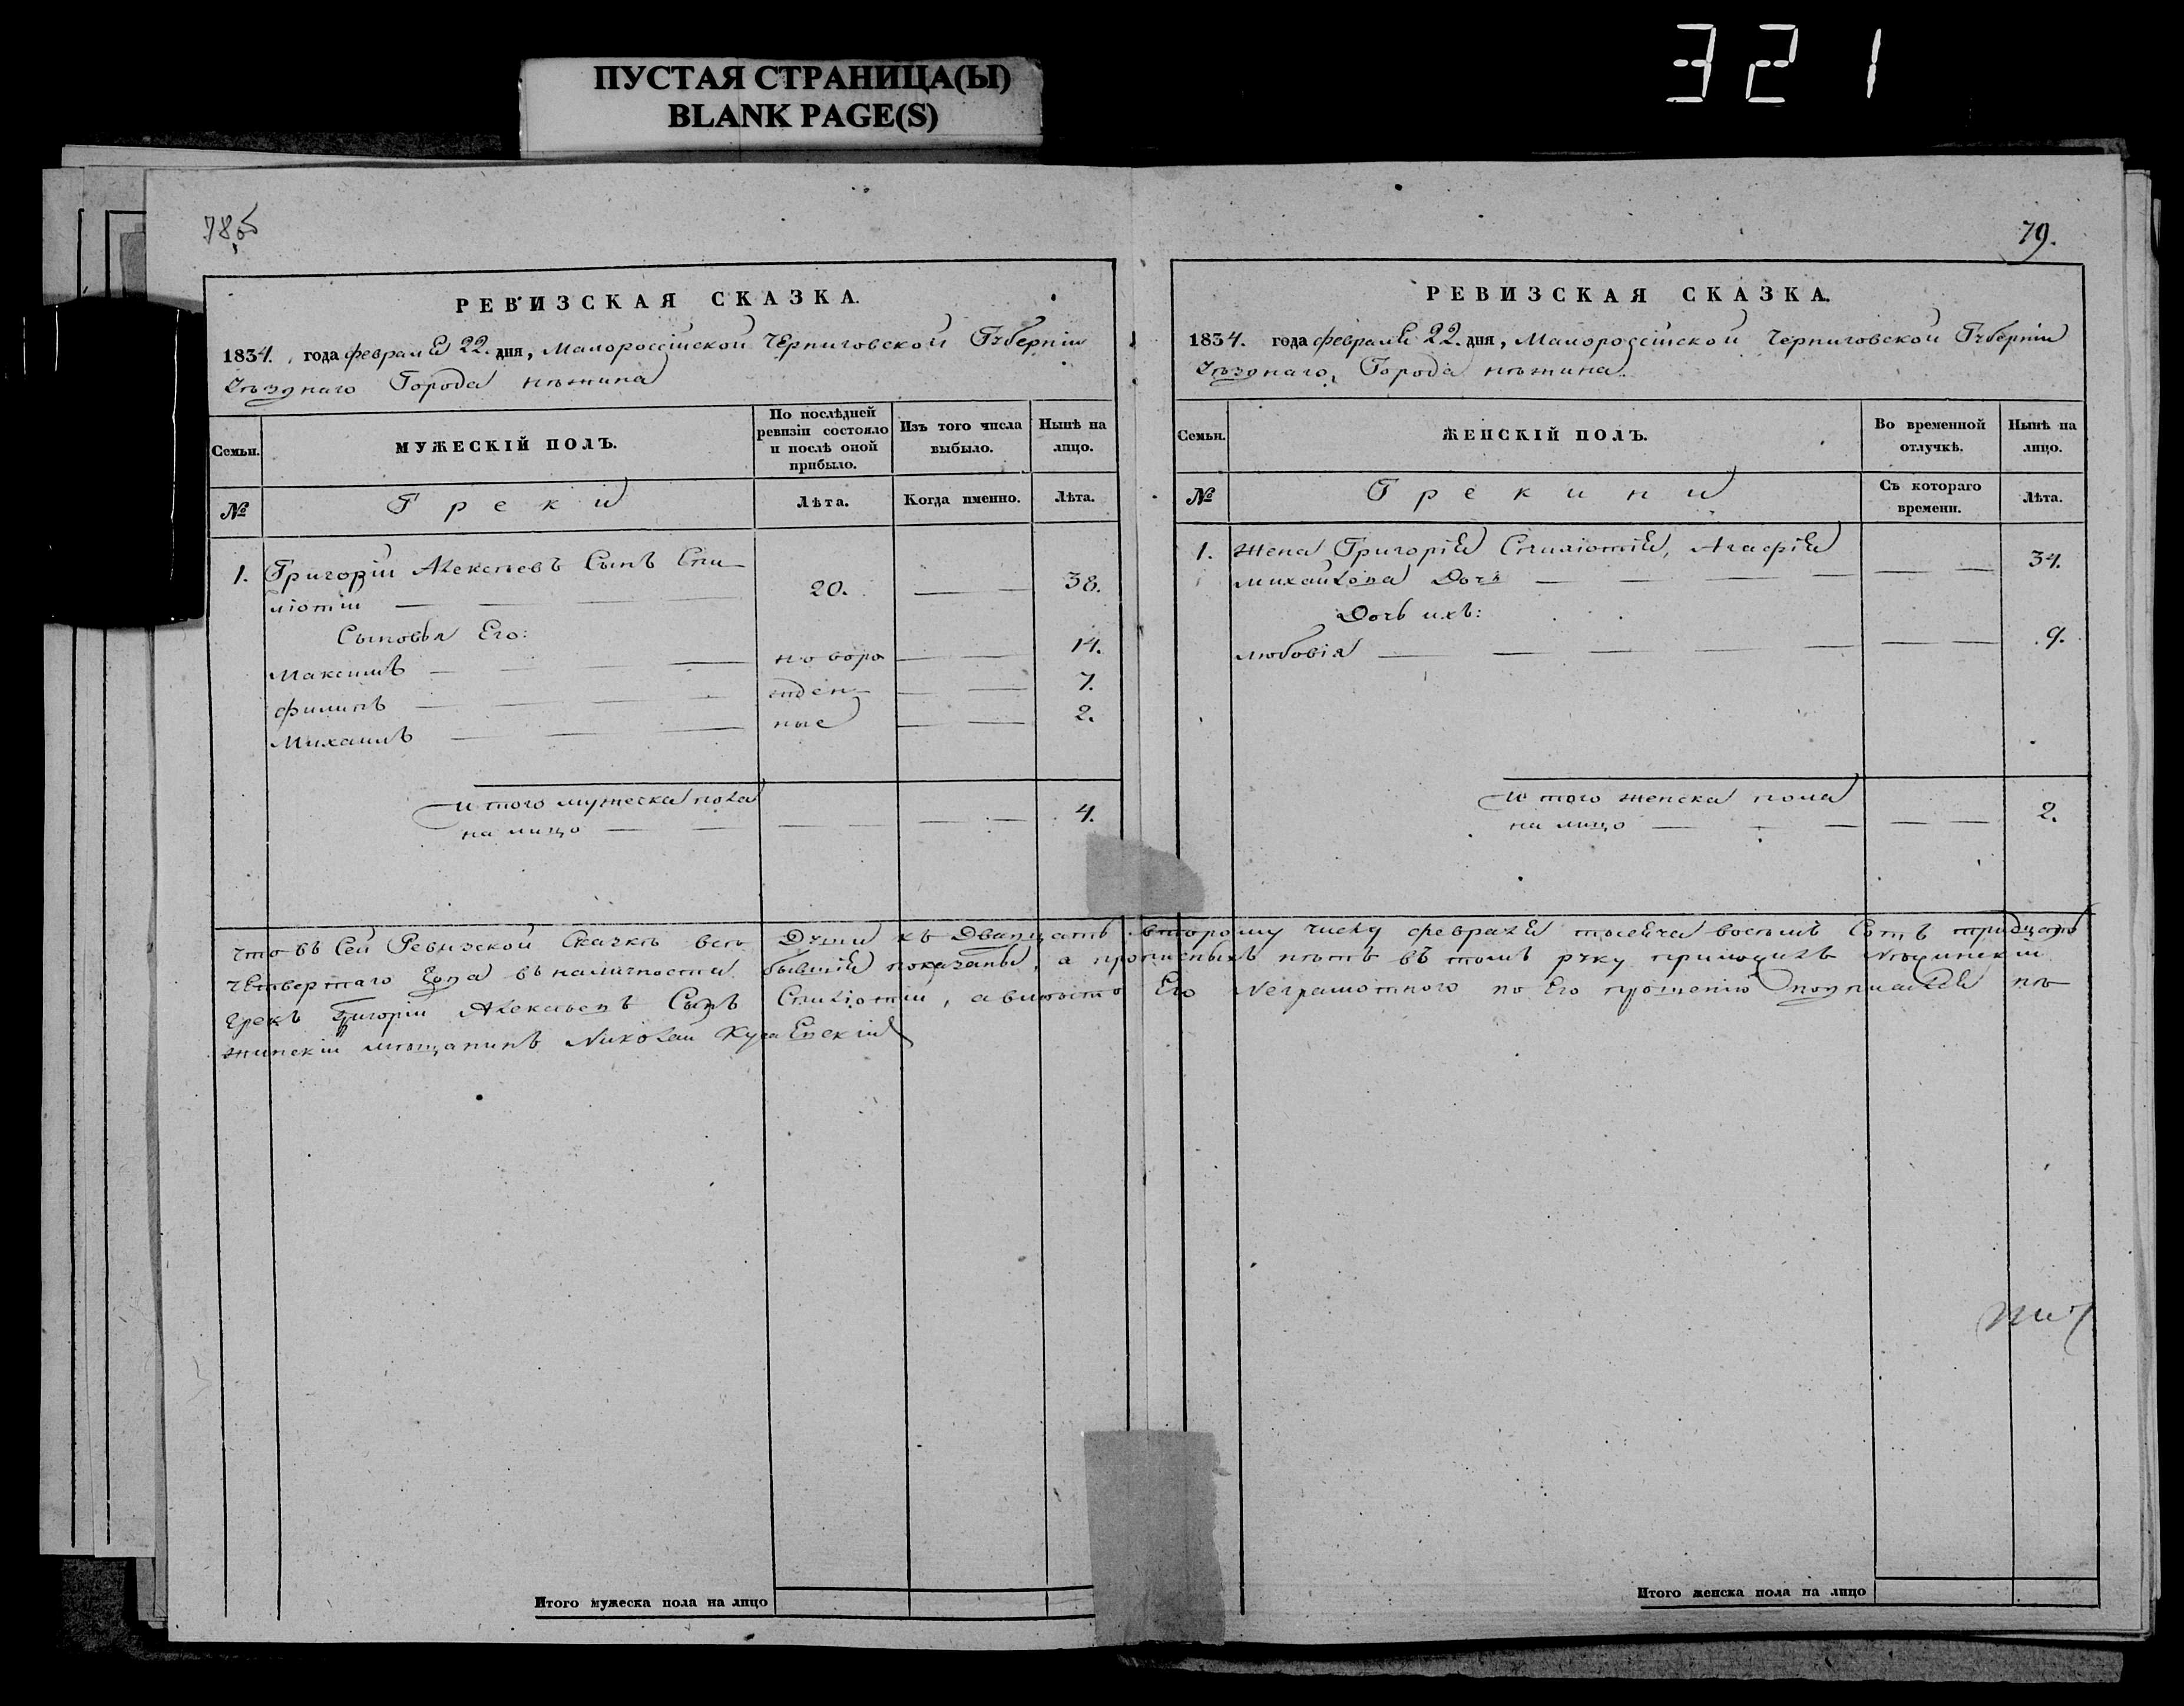 ПУСТАЯ СТРАНИЦА(Ы)
BLANK PAGE(S)
321
78об
РЕВИЗСКАЯ СКАЗКА.
1834. года февраля 22. дня, Малороссійской Черниговской Губерніи
Уѣзднаго Города нѣжина
Семьи. МУЖЕСКІЙ ПОЛЪ. По послѣдней ревизіи состояло и послѣ оной прибыло. Изъ того числа выбыло. Нынѣ на лицо.
№ Греки Лѣта. Когда именно. Лѣта.
1. Григорій Алексѣевъ Сынъ Спи-
ліотій 20. 38.
Сыновья Его:
Максимъ новоро 14.
филипъ жден- 7.
Михаилъ ные 2.
Итого мужеска пола
на лицо 4.
79.
РЕВИЗСКАЯ СКАЗКА.
1834. года февраля 22. дня, Малороссійской Черниговской Губерніи
Уѣзднаго Города нѣжина
Семьи. ЖЕНСКІЙ ПОЛЪ. Во временной отлучкѣ. Нынѣ на лицо.
№ Грекини Съ котораго времени. Лѣта.
1. Жена Григорія Спиліотія, Агафія
михайлова Дочь 34.
Дочь ихъ:
любовія 9.
Итого женска пола
на лицо 2.
что въ Сей Ревизской Сказкѣ всѣ Души къ Двапцать второму числу февраля тысеча восемъ Сотъ тридцать
четвертаго Года въ наличности бывшія показаны, а прописныхъ нѣтъ въ томъ руку приложилъ Нѣжинскій
Грекъ Григорій Алексѣевъ Сынъ Спиліотій, авмѣсто Его Неграмотного по Его прошенію подписался нѣ
жинскій мѣщанинъ Николай
Итого мужеска пола на лицо
Итого женска пола на лицо